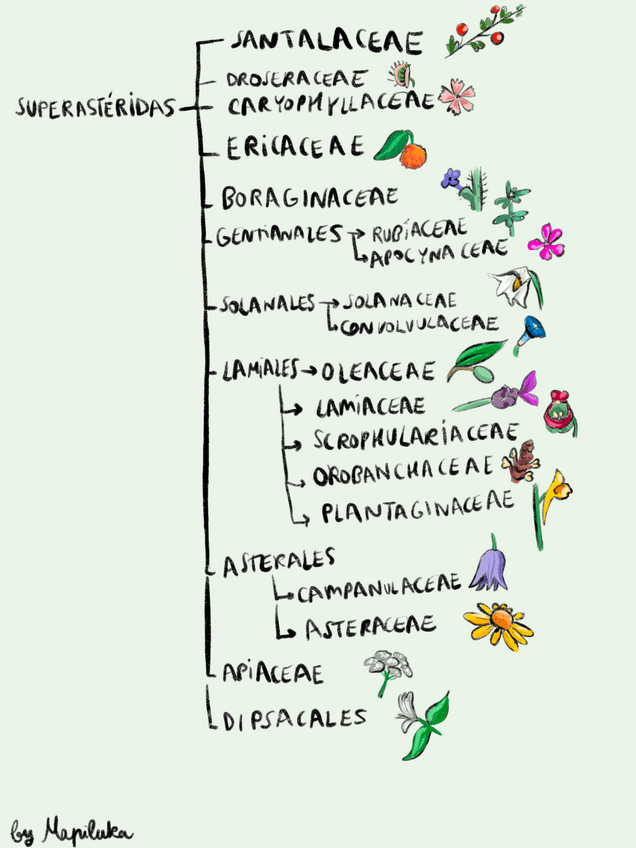 SANTALACEAE
DROSERACEAE
SUPERASTÉRIDAS
CARYOPHYLLACEAE
ERICACEAE
BORAGINACEAE
GENTIANALES → RUBÍACEAE
APOCYNACEAE
SOLANALES → SOLANACEAE
CONVOLVULACEAE
LAMIALES → OLEACEAE
LAMIACEAE
SCROPHULARIACEAE
OROBANCHACEAE
PLANTAGINACEAE
ASTERALES
CAMPANULACEAE
ASTERACEAE
APIACEAE
DIPSACALES
by Mapiluka